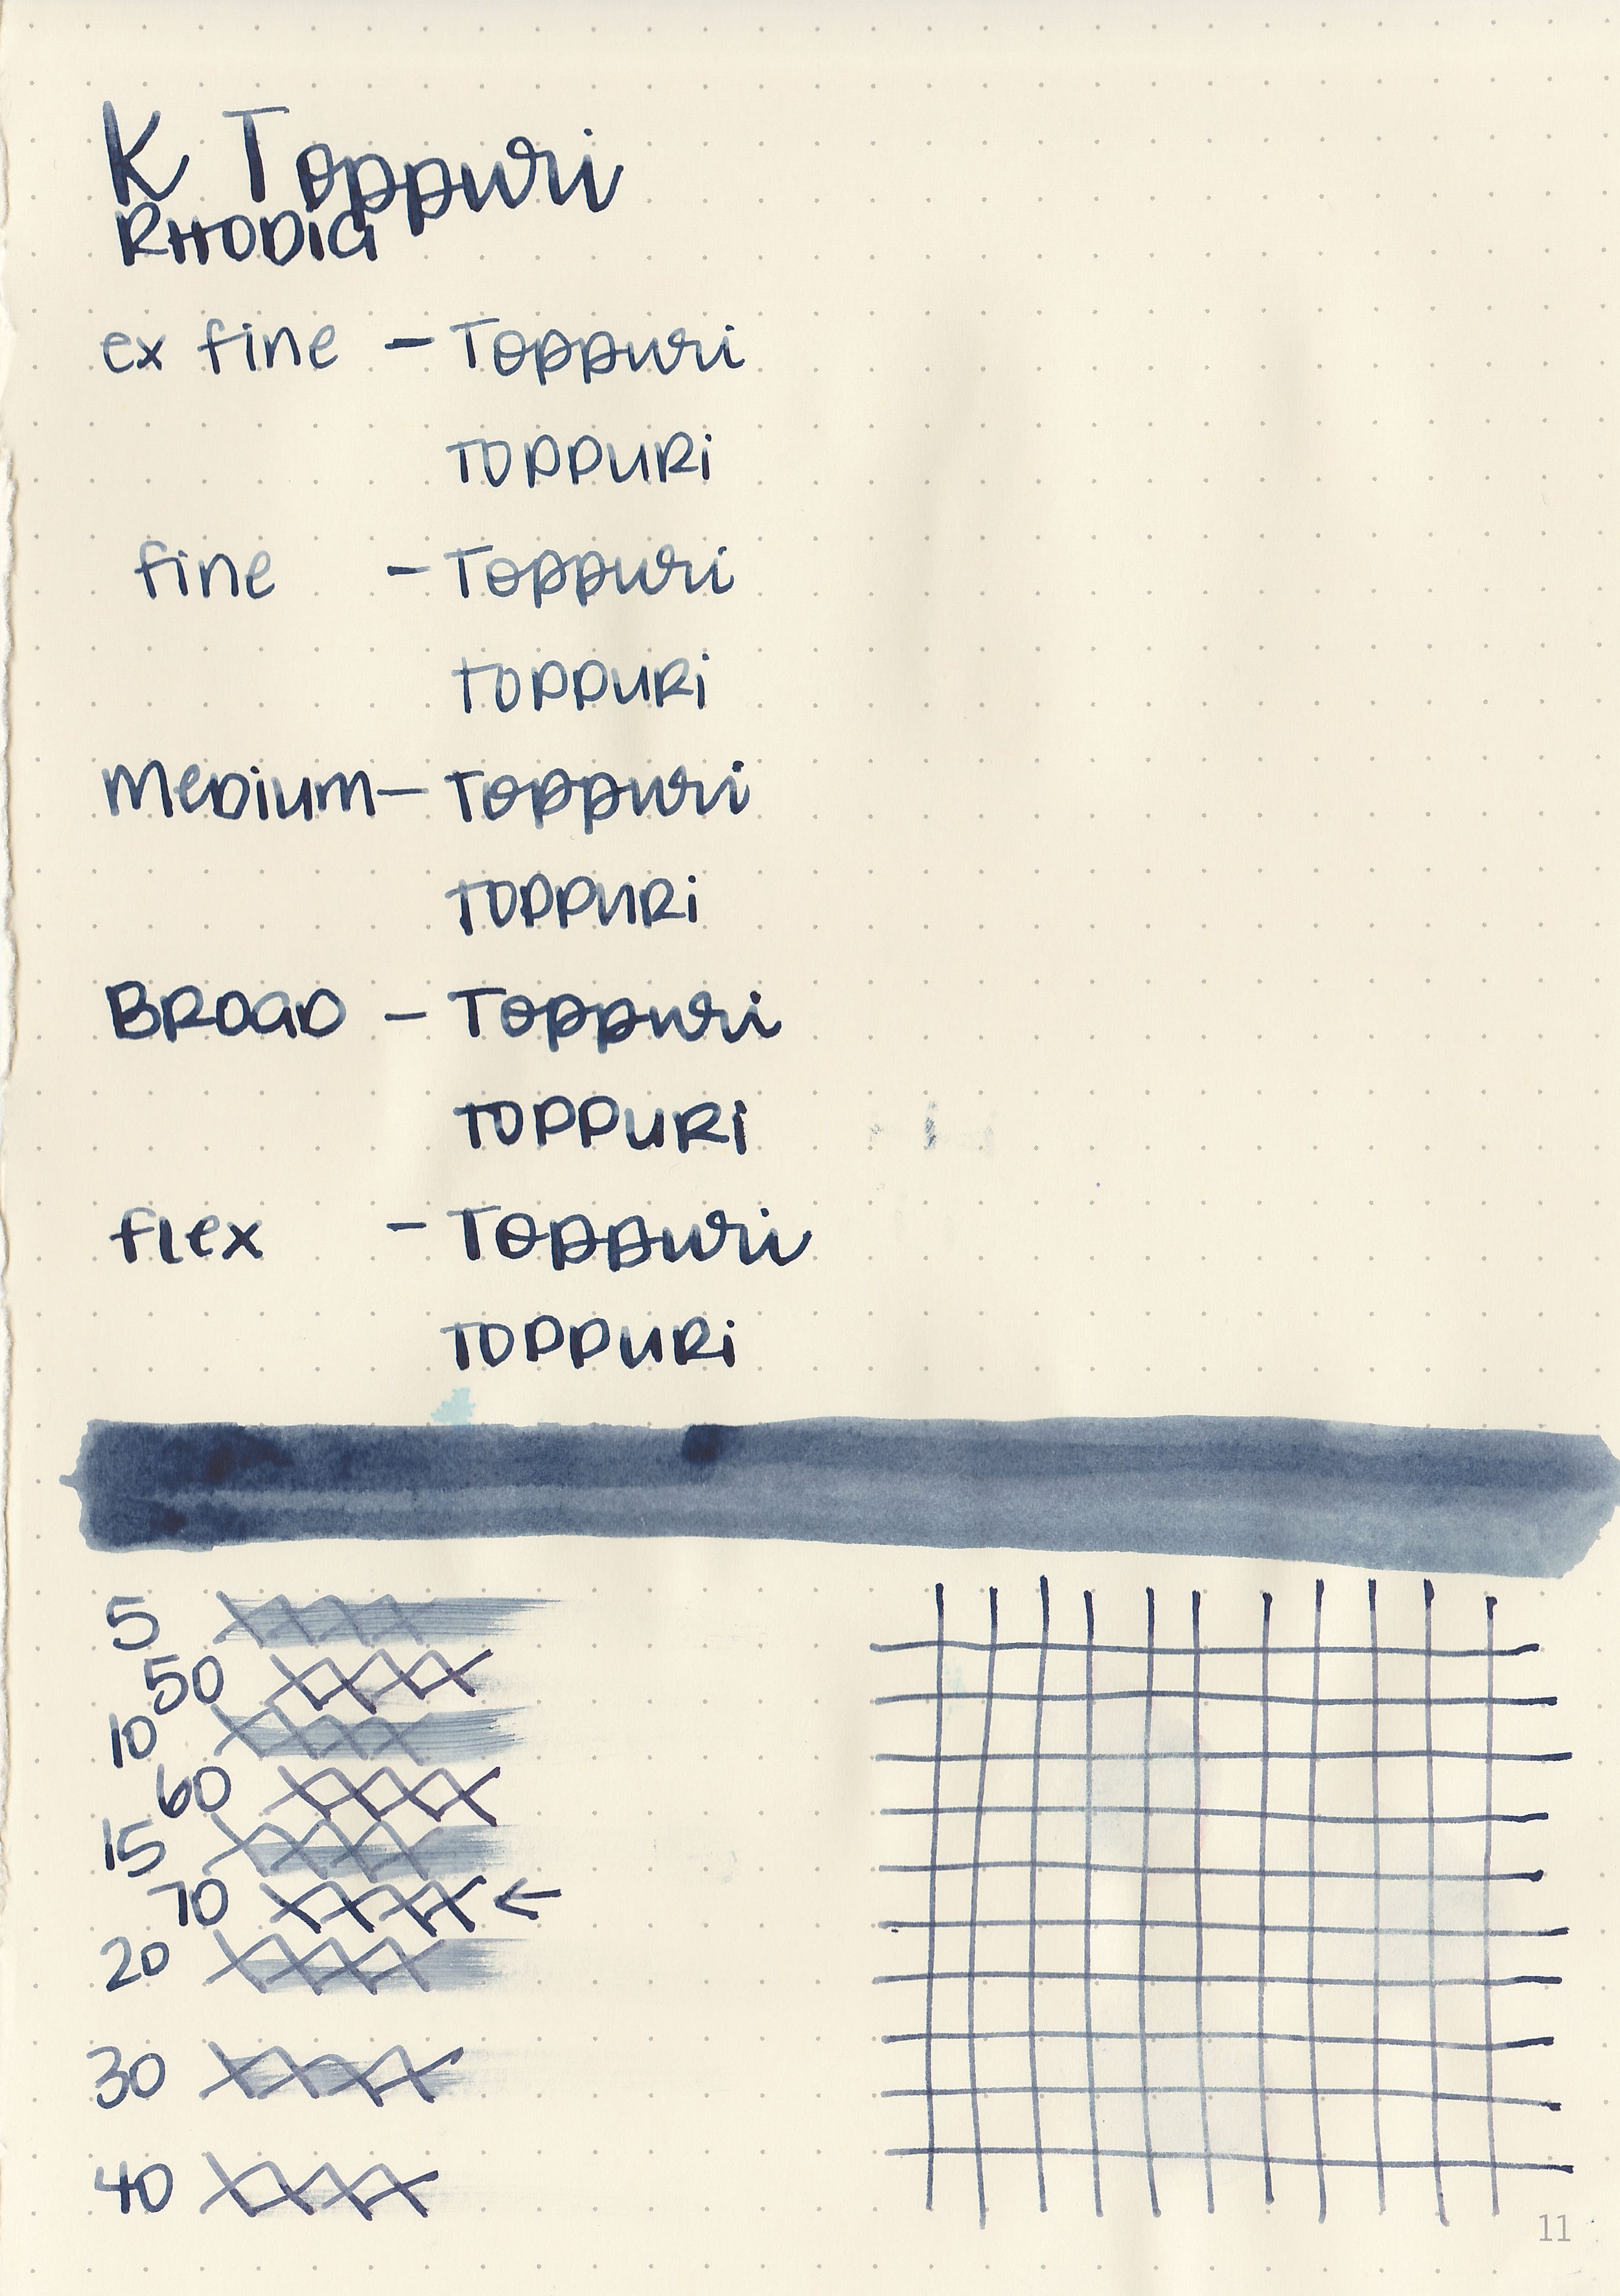 K Toppuri
RHODIA
ex fine - Toppuri
TOPPURi
fine - Toppuri
TOPPURi
Medium - Toppuri
TOPPURi
BROaD - Toppuri
TOPPURi
flex - Toppuri
TOPPURi
5
50
10
60
15
70 ←
20
30
40
11